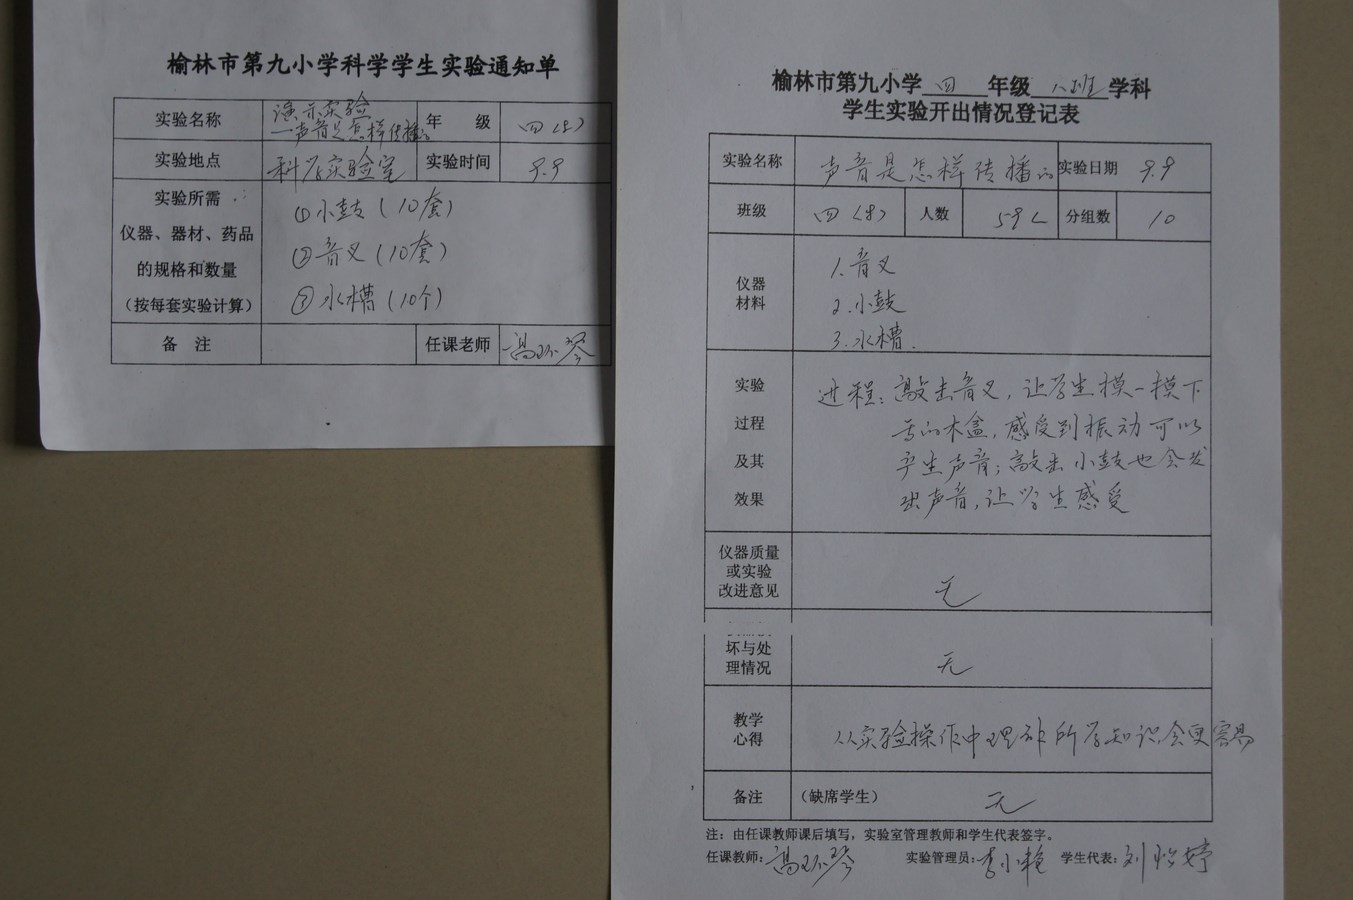 榆林市第九小学科学学生实验通知单
实验名称 演示实验 年 级 四（8）
一声音是怎样传播
实验地点 科学实验室 实验时间 9.9
实验所需
仪器、器材、药品
的规格和数量
（按每套实验计算）
①小鼓（10套）
②音叉（10套）
③水槽（10个）
备 注 任课老师
榆林市第九小学 四 年级 八班 学科
学生实验开出情况登记表
实验名称 声音是怎样传播的 实验日期 9.9
班级 四（8） 人数 59人 分组数 10
仪器
材料
1.音叉
2.小鼓
3.水槽.
实验
过程
及其
效果
过程：敲击音叉，让学生摸一摸下
写的木盒，感受到振动可以
产生声音；敲击小鼓也会发
出声音，让学生感受
仪器质量
或实验
改进意见
无
坏与处
理情况
无
教学
心得
从实验操作中理解所学知识会更容易
备注 （缺席学生） 无
注：由任课教师课后填写，实验室管理教师和学生代表签字。
任课教师： 实验管理员：李小艳 学生代表：刘怡婷